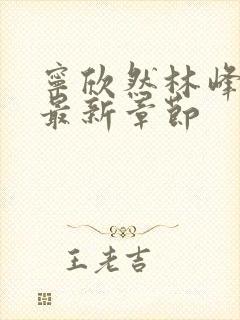 寧欣然林峰
最新章節
王老吉